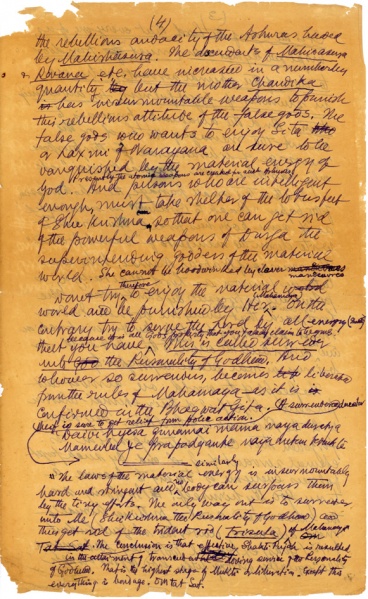 (4)
the rebellious audacity of the Ashuras headed
by Mahishasura. The descendants of Mahisasura
Ravana etc. have increased in a numberless
quantity but the mother Chandika
has insurmountable weapons to punish
this rebellious attitude of the false gods. The
false gods who wants to enjoy Sita
or Laxmi of Narayana are sure to be
vanquished by the material energy of
God. And persons who are intelligent
enough, must take shelter of the lotus feet
of Shri Krishna, so that one can get rid
of the powerful weapons of Durga the
superintending goddess of the material
world. She cannot be hoodwinked by clever
manoeuvres
therefore
Do not try to enjoy the material
world and be punished by Her. On the
contrary try to serve the Lord by all energy
that you have. This is called surrender
unto the Personality of Godhead. And
whoever so surrenders, becomes liberated
from the rules of Mahamaya as it is
confirmed in the Bhagwat Geta.
sure to get relief from police action.
Daivi hyesa gunamai mama maya duratya
Mameva ye Prapadyante maya
similarly
"The law of the material energy is insurmountably
hard and stringent and no body can surpass them
by the tiny efforts. The only way out is to surrender
unto Me (Shri Krishna the Personality of Godhead) and
thus get rid of the trident rod (Trisula) of Mahamaya
The conclusion is that
in the attainment of transcendental loving service of Personality
of Godhead. That is the highest stage of Mukti or liberation. Except this
everything is bondage. Om Tat Sat.